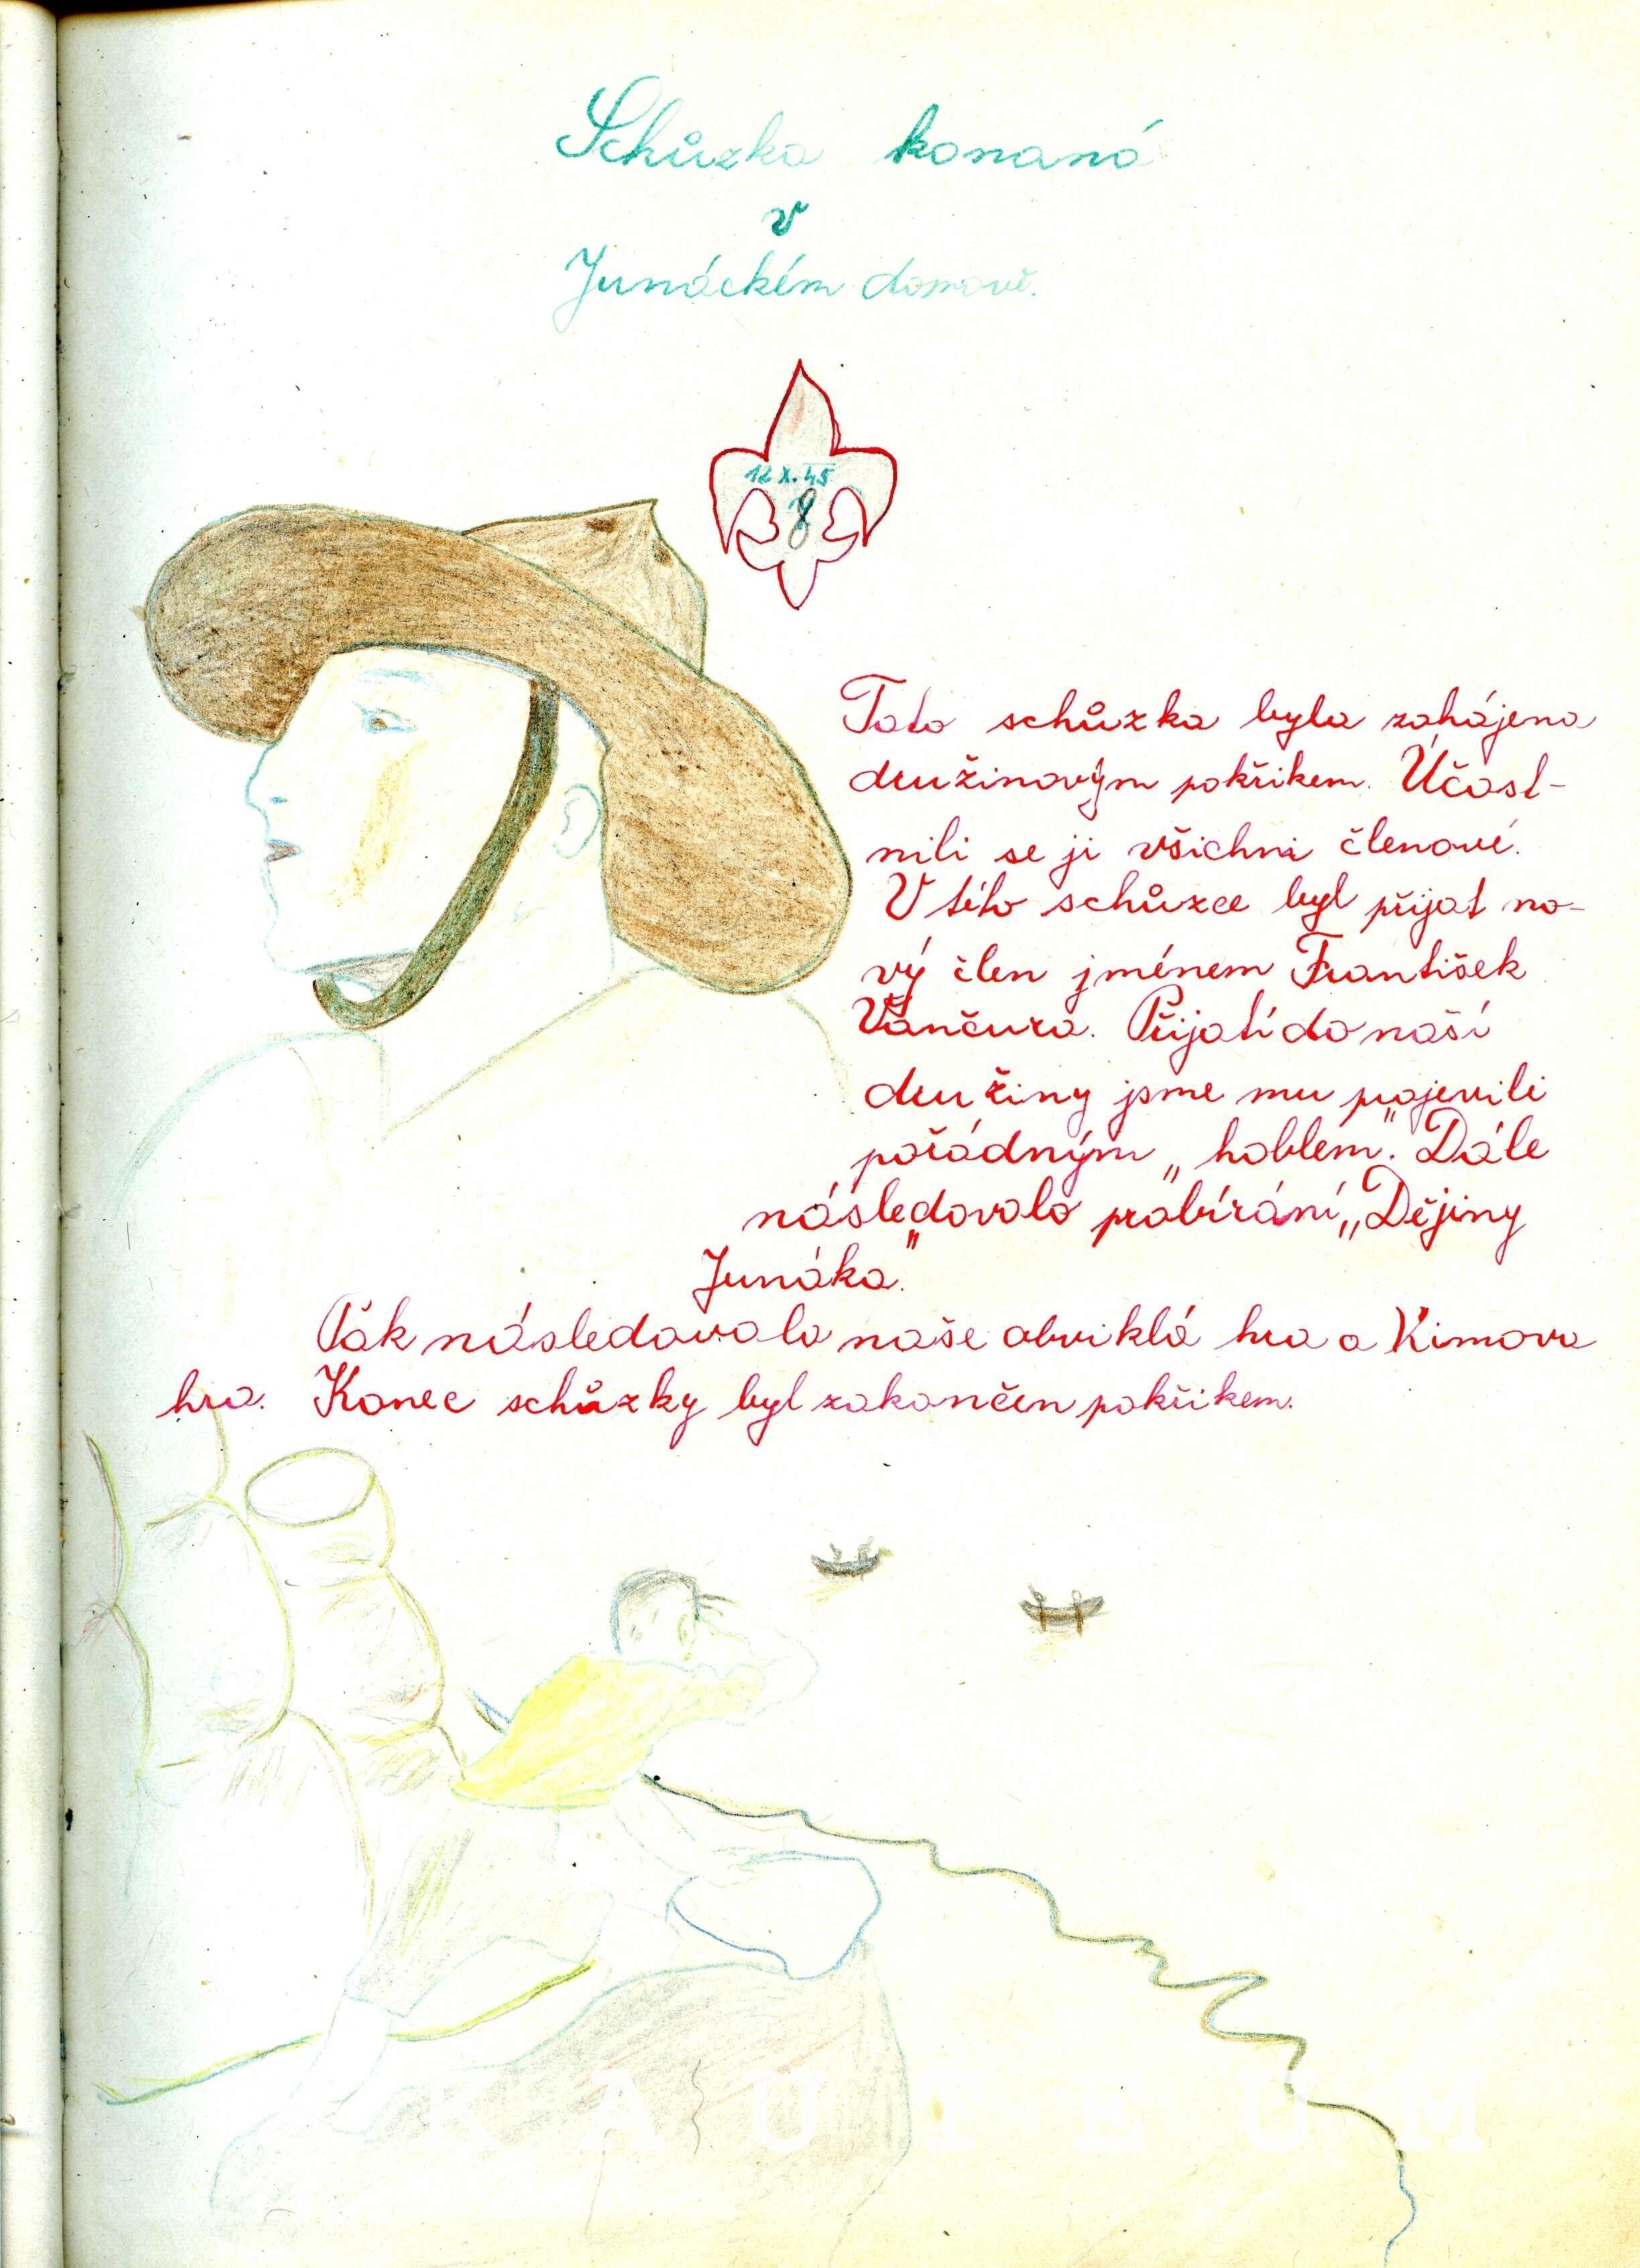 Schůzka konaná
v
Junáckém domově.
12 X. 45
8
Tato schůzka byla zahájena
družinovým pokřikem. Účast-
nili se ji všichni členové.
V této schůzce byl přijat no-
vý člen jménem František
Vančura. Přijatí do naší
družiny jsme mu projevili
pořádným „hoblem". Dále
následovalo probírání „Dějiny
Junáka."
Pak následovala naše obviklá hra a Kimova
hra. Konec schůzky byl zakončen pokřikem.
KAUTEUM